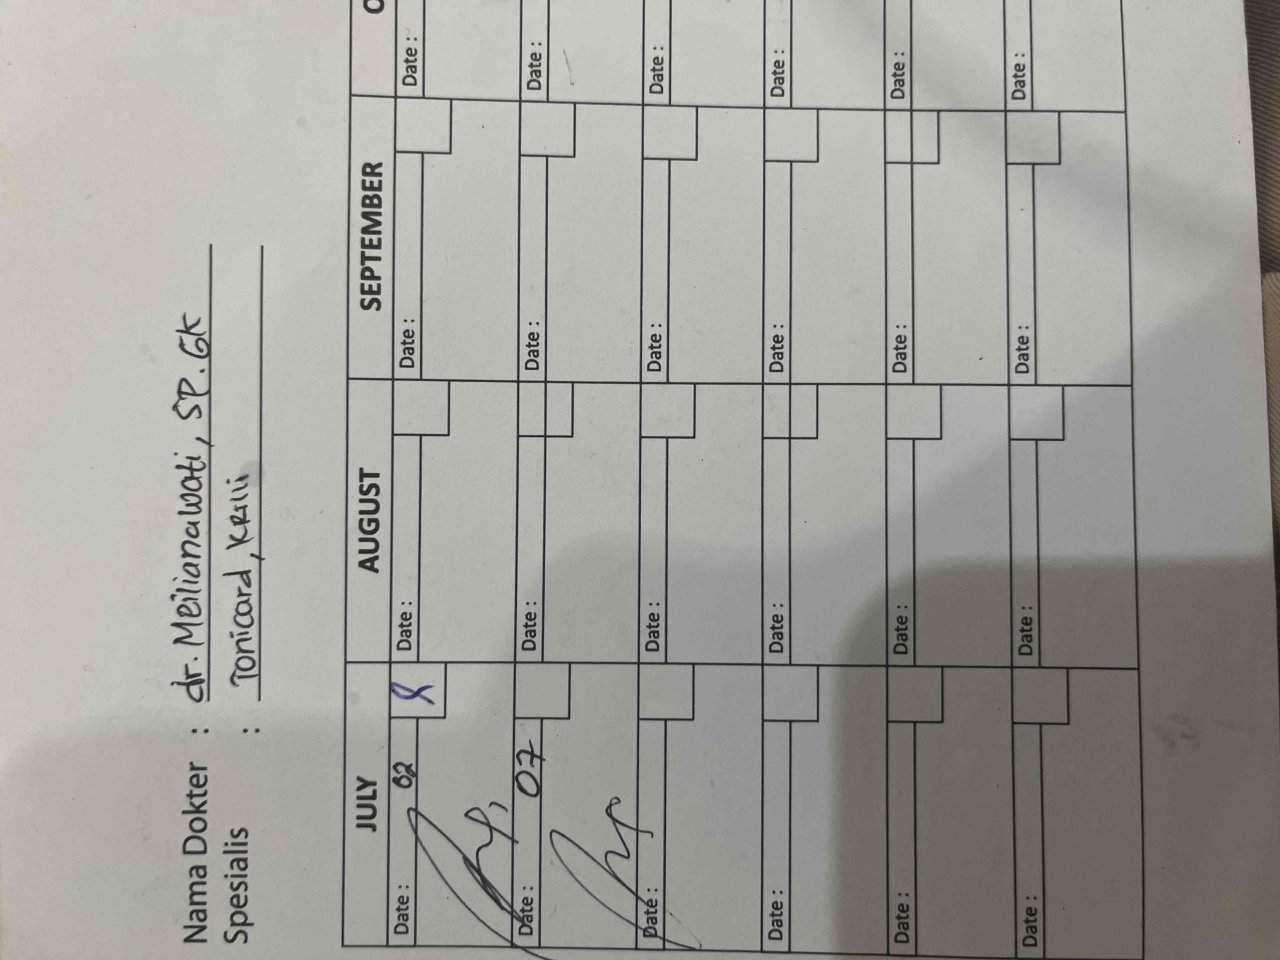 Nama Dokter : dr. Meilianawati, SP.GK
Spesialis : Tonicard, Krilli
JULY AUGUST SEPTEMBER O
Date : 02 Date : Date : Date :
Date : 07 Date : Date : Date :
Date : Date : Date : Date :
Date : Date : Date : Date :
Date : Date : Date : Date :
Date : Date : Date : Date :